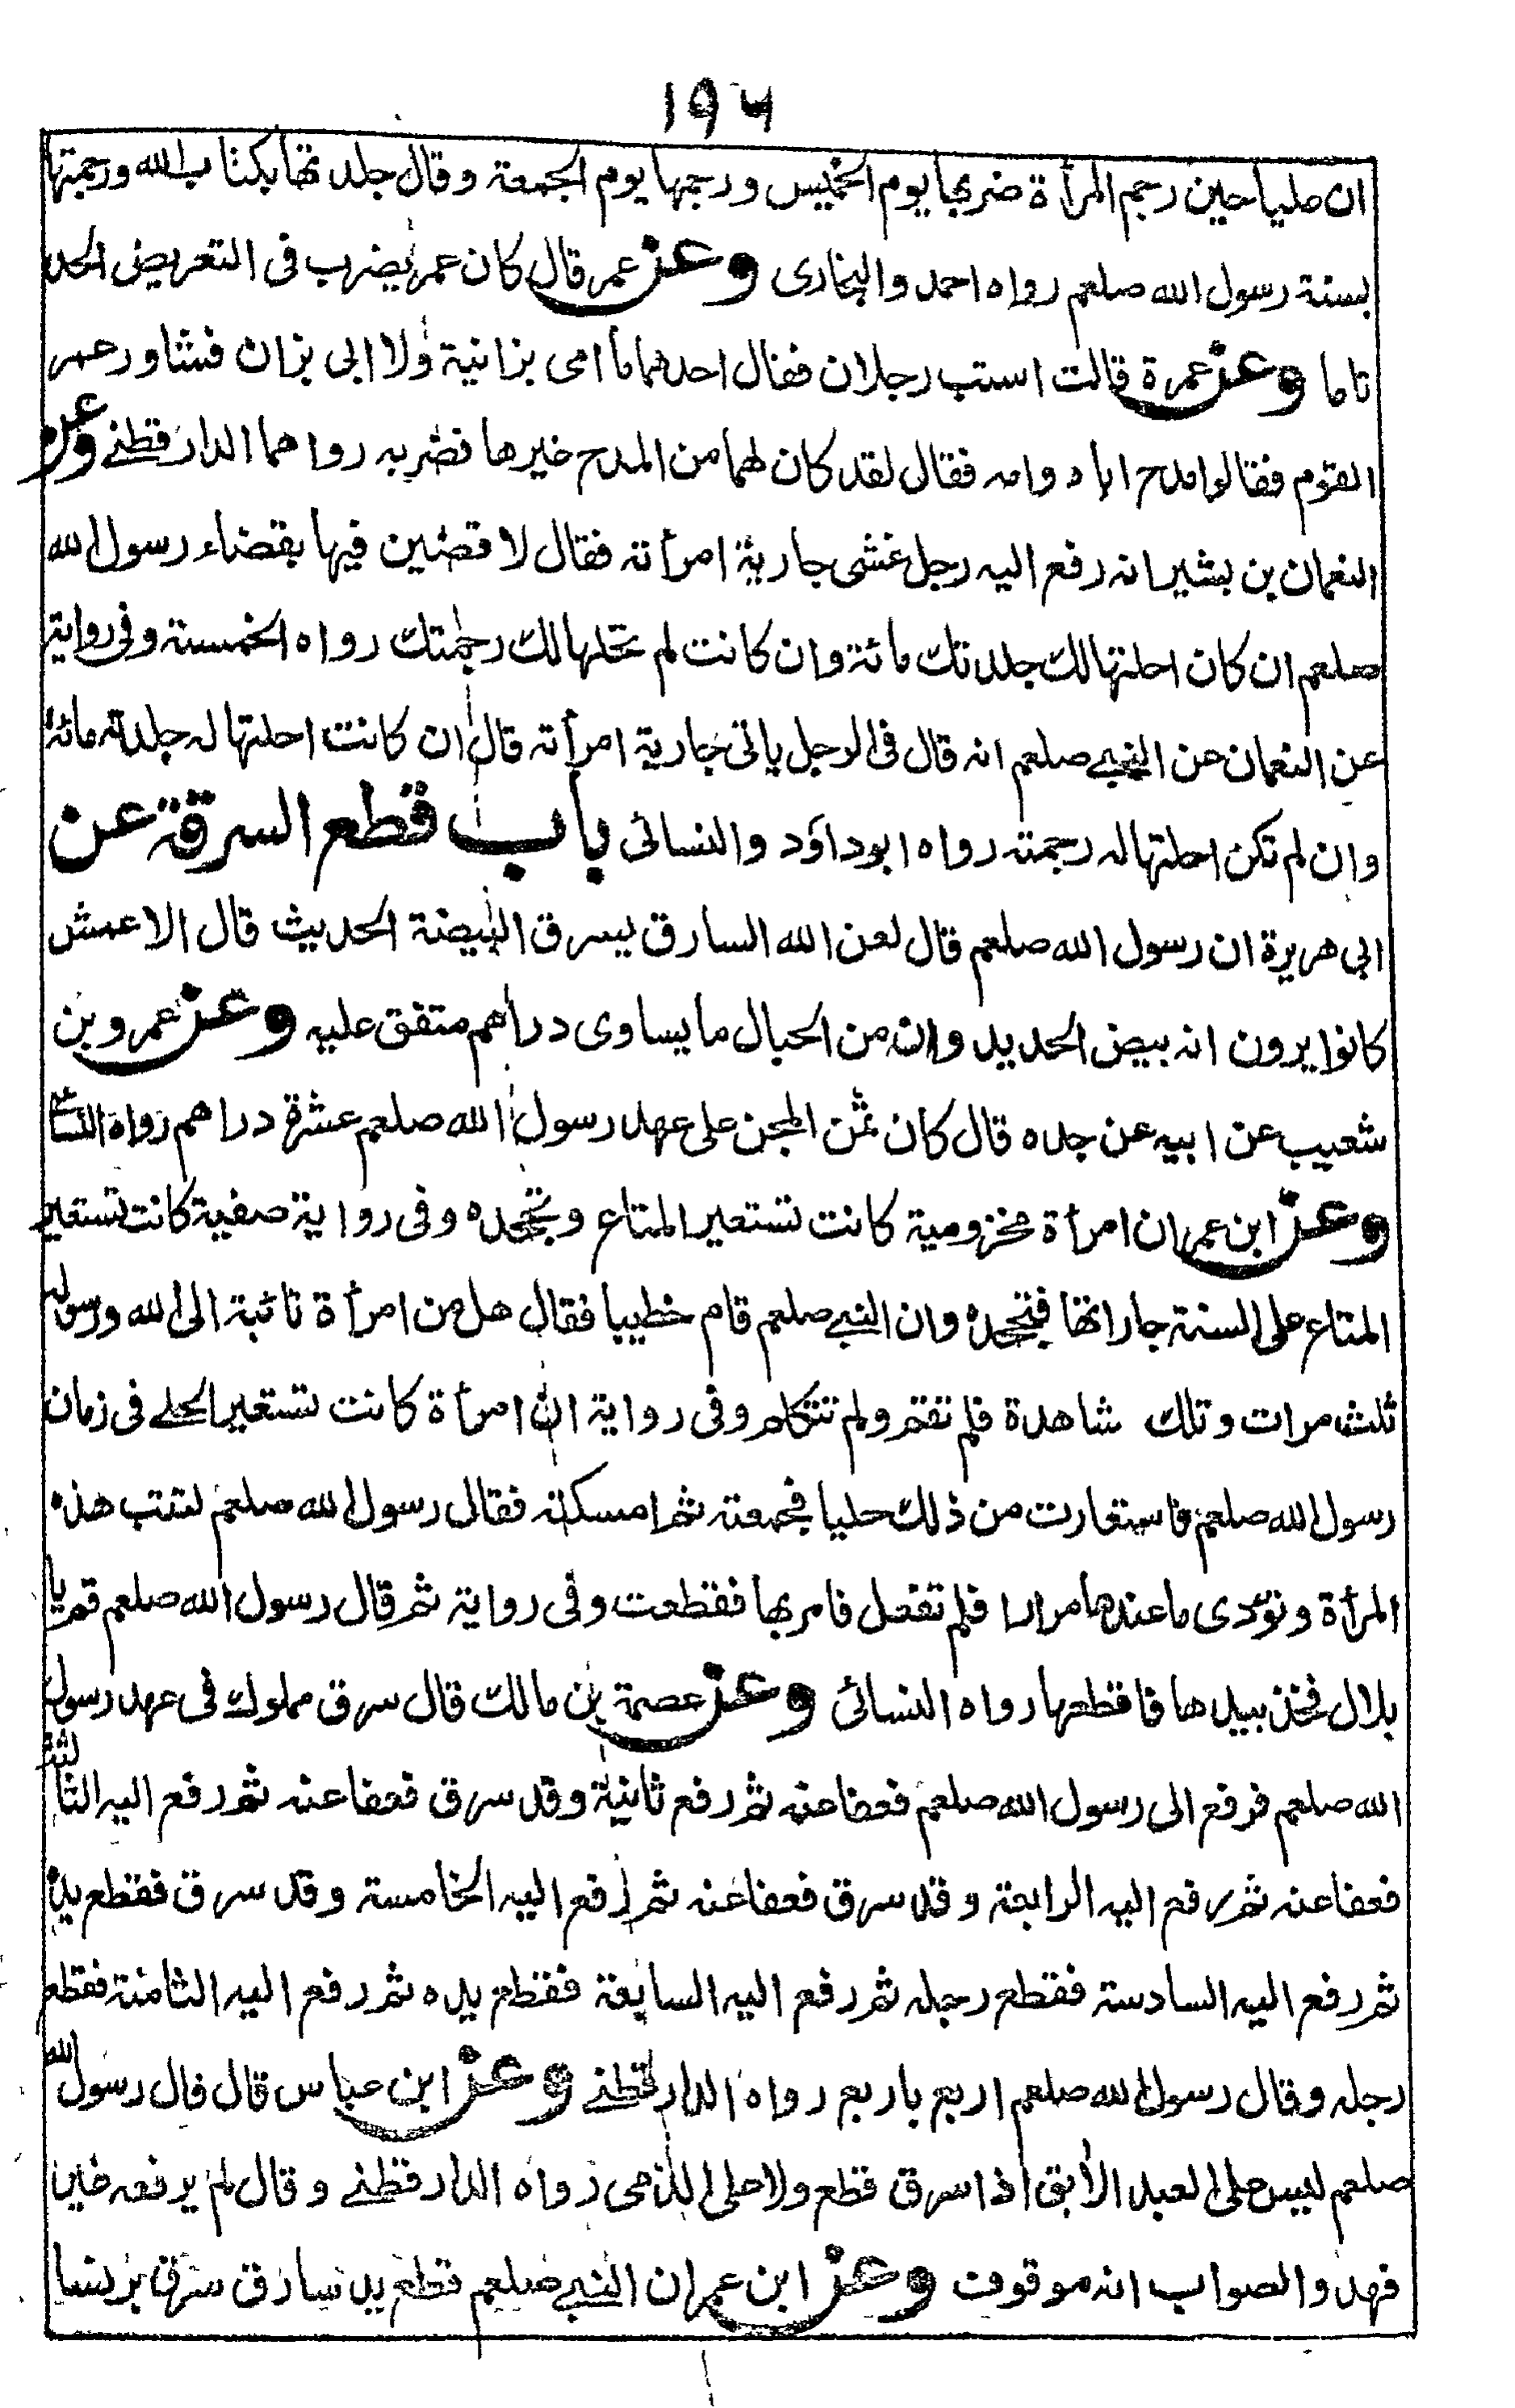 ۱۹۶
ان عليا حين رجم المرأة ضربها يوم الخميس ورجمها يوم الجمعة وقال جلدتها بكتاب الله ورجمتها
بسنة رسول الله صلعم رواه احمد والبخاري وعن عمر قال كان عمر يضرب فى التعريض الحد
تاما وعن عمرة قالت استب رجلان فقال احدهما ما امى بزانية ولا ابى بزان فشاور عمر
القوم فقالوا مدح اباه وامه فقال لقد كان لهما من المدح غير هذا فضربه رواهما الدارقطنى وعن
النعمان بن بشير انه رفع اليه رجل غشى جارية امرأته فقال لاقضين فيها بقضاء رسول الله
صلعم ان كان احلتها لك جلدتك مائة وان كانت لم تحلها لك رجمتك رواه الخمسة وفى رواية
عن النعمان عن النبى صلعم انه قال فى الرجل ياتى جارية امرأته قال ان كانت احلتها له جلدته مائة
وان لم تكن احلتها له رجمته رواه ابوداؤد والنسائى باب قطع السرقة عن
ابى هريرة ان رسول الله صلعم قال لعن الله السارق يسرق البيضة الحديث قال الاعمش
كانوا يرون انه بيض الحديد وان من الحبال ما يساوى دراهم متفق عليه وعن عمرو بن
شعيب عن ابيه عن جده قال كان ثمن المجن على عهد رسول الله صلعم عشرة دراهم رواه النسائى
وعن ابن عمر ان امرأة مخزومية كانت تستعير المتاع وتجحده وفى رواية صفية كانت تستعير
المتاع على السنة جاراتها فتجحده وان النبى صلعم قام خطيبا فقال هل من امرأة تائبة الى الله ورسوله
ثلث مرات وتلك شاهدة فلم تقم ولم تتكلم وفى رواية ان امرأة كانت تستعير الحلى فى زمان
رسول الله صلعم فاستعارت من ذلك حليا فجمعته ثم امسكته فقال رسول الله صلعم لتتب هذه
المرأة وتؤدى ما عندها مرارا فلم تفعل فامر بها فقطعت وفى رواية ثم قال رسول الله صلعم قم يا
بلال فخذ بيدها فاقطعها رواه النسائى وعن عصمة بن مالك قال سرق مملوك فى عهد رسول
الله صلعم فرفع الى رسول الله صلعم فعفا عنه ثم رفع ثانية وقد سرق فعفا عنه ثم رفع اليه الثالثة
فعفا عنه ثم رفع اليه الرابعة وقد سرق فعفا عنه ثم رفع اليه الخامسة وقد سرق فقطع يده
ثم رفع اليه السادسة فقطع رجله ثم رفع اليه السابعة فقطع يده ثم رفع اليه الثامنة فقطع
رجله وقال رسول الله صلعم اربع باربع رواه الدارقطنى وعن ابن عباس قال قال رسول الله
صلعم ليس على العبد الابق اذا سرق قطع ولا على الذمى رواه الدارقطنى وقال لم يرفعه غير
فهد والصواب انه موقوف وعن ابن عمر ان النبى صلعم قطع يد سارق سرق برنسا